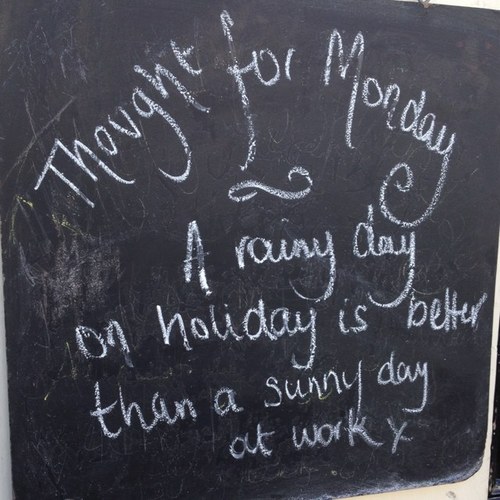 Thought for Monday
A rainy day
on holiday is better
than a sunny day
at work x